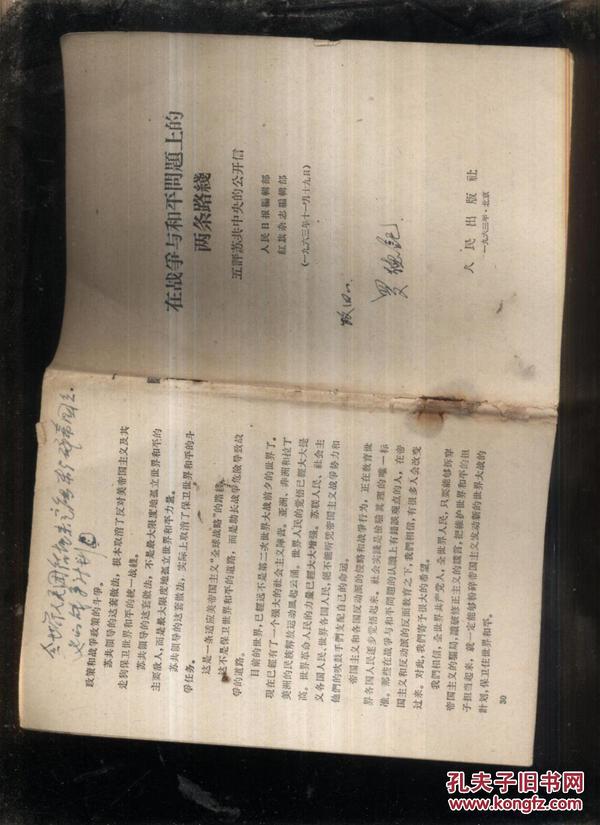 在战爭与和平問題上的
两条路綫
五評苏共中央的公开信
人民日报編輯部
紅旗杂志編輯部
(一九六三年十一月十九日)
人民出版社
一九六三年·北京
政策和战爭政策的斗爭。
苏共領导的这套做法，根本取消了反对美帝国主义及其
走狗保卫世界和平的統一战綫。
苏共領导的这套做法，不是最大限度地孤立世界和平的
主要敌人，而是最大限度地孤立世界和平力量。
苏共領导的这套做法，实际上取消了保卫世界和平的斗
爭任务。
这是一条适应美帝国主义“全球战略”的路綫。
这不是保卫世界和平的道路，而是助长战爭危险导致战
爭的道路。
目前的世界，已經远不是第二次世界大战前夕的世界了。
現在已經有了一个强大的社会主义陣营。亚洲、非洲和拉丁
美洲的民族解放运动風起云涌。世界人民的觉悟已經大大提
高。世界革命人民的力量已經大大增强。苏联人民、社会主
义各国人民、世界各国人民，絕不能听凭帝国主义战爭势力和
他們的吹鼓手們支配自己的命运。
帝国主义和各国反动派的侵略和战爭行为，正在教育世
界各国人民逐步觉悟起来。社会实踐是檢驗眞理的唯一标
准。那些在战爭与和平問題的认識上有錯誤观点的人，在帝
国主义和反动派的反面教育之下，我們相信，有很多人会改变
过来。对此，我們寄予很大的希望。
我們相信，全世界共产党人，全世界人民，只要能够拆穿
帝国主义的騙局，識破修正主义的謊言，把維护世界和平的担
子担当起来，就一定能够粉碎帝国主义发动新的世界大战的
計划，保卫住世界和平。
30
孔夫子旧书网
www.kongfz.com